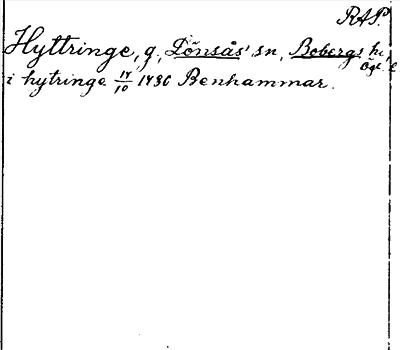 RAP
Hyttringe, g, Lönsås' sn, Bobergs hd,
Ögl
i hytringe 14/10 1436 Benhammar.